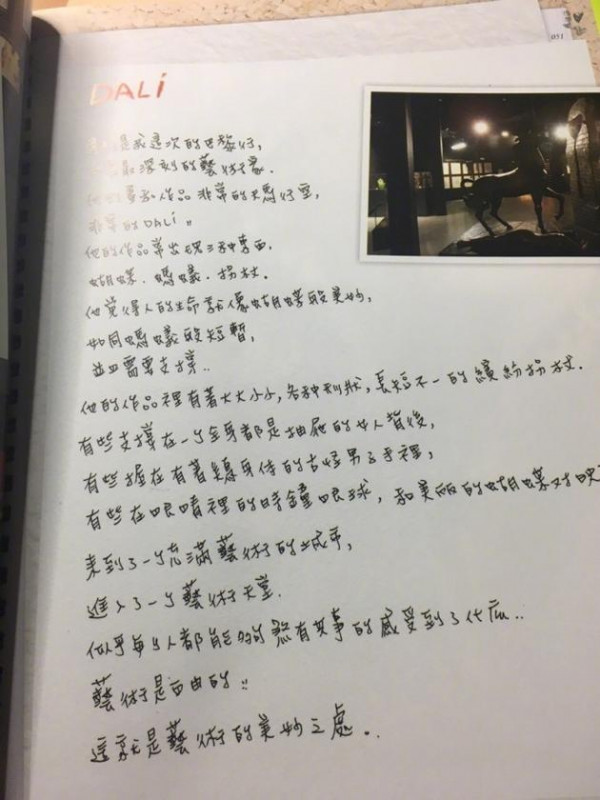 DALí
是我這次的巴黎行,
最深刻的藝術家.
他的畫和作品非常的天馬行空,
非常的DALí。
他的作品常出現三种東西,
蝴蝶.螞蟻.拐杖.
他覺得人的生命就像蝴蝶般美妙,
如同螞蟻般短暫,
並且需要支撐..
他的作品裡有著大大小小,各种形狀,長短不一的繽紛拐杖.
有些支撐在一个全身都是抽屜的女人背後,
有些握在有著 身体的古怪男子手裡,
有些在眼睛裡的時鐘眼球,和美丽的蝴蝶对映
來到了一个充滿藝術的城市,
進入了一个藝術天堂.
似乎每个人都能夠煞有其事的感受到了什麼..
藝術是自由的..
這就是藝術的美妙之處..
051